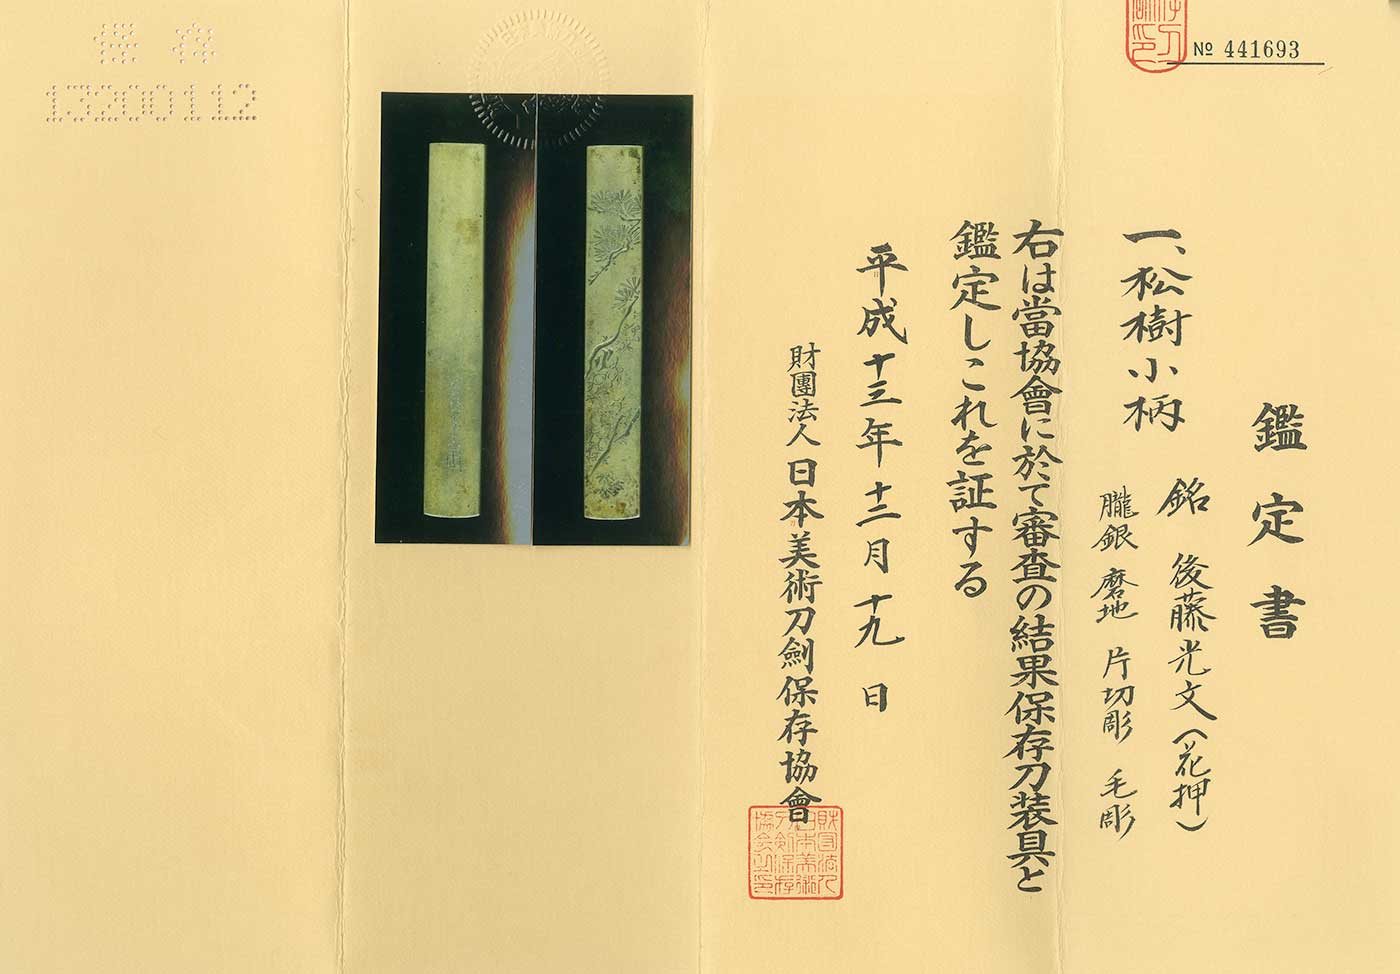 鑑定書
一、松樹小柄
銘 後藤光文(花押)
朧銀 磨地 片切彫 毛彫
右は當協會に於て審査の結果保存刀装具と
鑑定しこれを証する
平成十三年十二月十九日
財團法人日本美術刀劍保存協會
№ 441693
保存
13200112